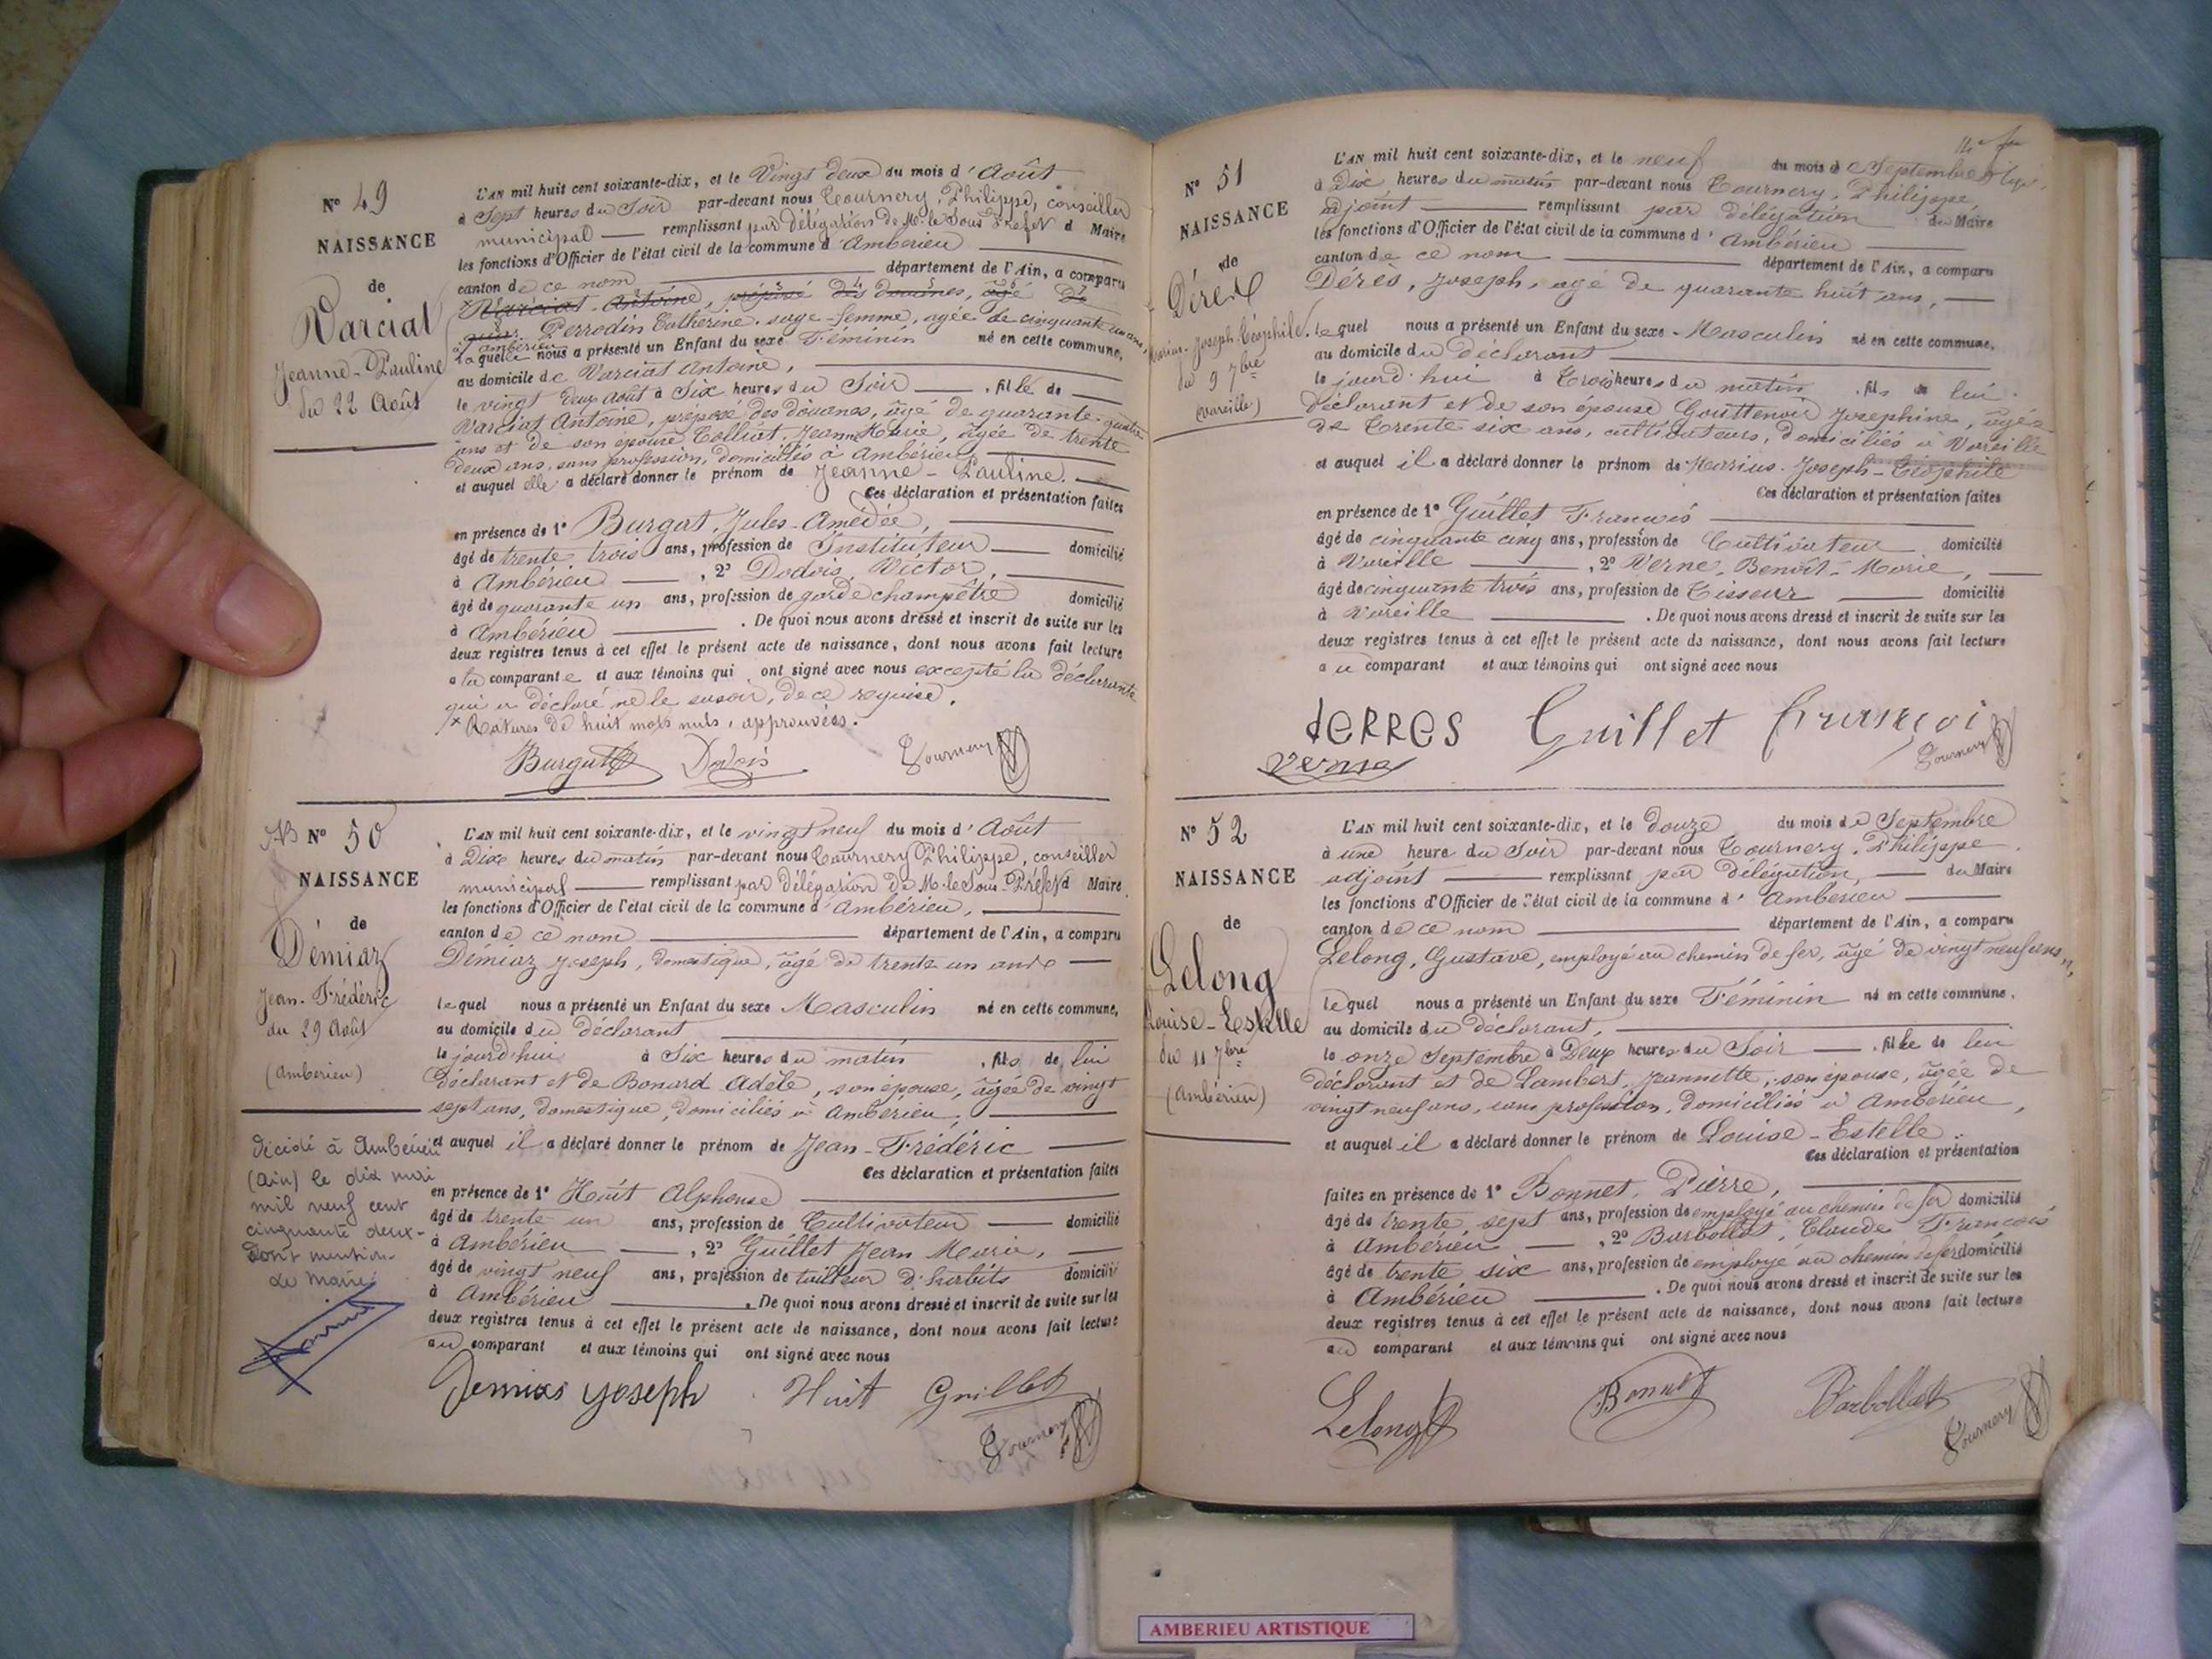 N° 49
NAISSANCE
de
Varciat
Jeanne-Pauline
du 22 Août
L'AN mil huit cent soixante-dix, et le Vingt deux du mois d'Août
à Sept heures du Soir par-devant nous Tournery, Philippe, conseiller
municipal remplissant par délégation de Mr le Sous Préfet d Maire
les fonctions d'Officier de l'état civil de la commune d'Ambérieu
canton de ce nom département de l'Ain, a comparu
Varciat Antoine, préposé des douanes, âgé de
Perrodin Catherine, sage-femme, agée de cinquante un ans,
à Ambérieu
laquelle nous a présenté un Enfant du sexe Féminin né en cette commune,
au domicile de Varciat Antoine,
le vingt deux Août à Six heures du Soir, fille de
Varciat Antoine, préposé des douanes, âgé de quarante-quatre
ans et de son épouse Colliat, Jeanne Marie, âgée de trente
deux ans, sans profession, domiciliés à Ambérieu
et auquel elle a déclaré donner le prénom de Jeanne-Pauline.
Ces déclaration et présentation faites
en présence de 1° Burgat, Jules-Amédée,
âgé de trente-trois ans, profession de Instituteur domicilié
à Ambérieu, 2° Dodois, Victor,
âgé de quarante un ans, profession de garde champêtre domicilié
à Ambérieu. De quoi nous avons dressé et inscrit de suite sur les
deux registres tenus à cet effet le présent acte de naissance, dont nous avons fait lecture
a la comparante et aux témoins qui ont signé avec nous excepté la déclarante
qui a déclaré ne le savoir, de ce requise.
x Ratures de huit mots nuls, approuvées.
Burgat Dodois Tournery
N° 50
NAISSANCE
de
Démiaz
Jean-Frédéric
du 29 Août
(Ambérieu)
Décédé à Ambérieu
(Ain) le dix mai
mil neuf cent
cinquante deux-
Dont mention-
Le Maire
L'AN mil huit cent soixante-dix, et le vingt neuf du mois d'Août
à Dix heures du matin par-devant nous Tournery Philippe, conseiller
municipal remplissant par délégation de Mr le Sous-Préfet d Maire
les fonctions d'Officier de l'état civil de la commune d'Ambérieu,
canton de ce nom département de l'Ain, a comparu
Démiaz Joseph, domestique, âgé de trente un ans
lequel nous a présenté un Enfant du sexe Masculin né en cette commune,
au domicile du déclarant
le jourd'hui à Six heures du matin, fils de lui
déclarant et de Bonard Adèle, son épouse, âgée de vingt
sept ans, domestique, domiciliés à Ambérieu,
et auquel il a déclaré donner le prénom de Jean-Frédéric
Ces déclaration et présentation faites
en présence de 1° Huit Alphonse
âgé de trente un ans, profession de Cultivateur domicilié
à Ambérieu, 2° Guillet Jean Marie,
âgé de vingt neuf ans, profession de tailleur d'habits domicilié
à Ambérieu. De quoi nous avons dressé et inscrit de suite sur les
deux registres tenus à cet effet le présent acte de naissance, dont nous avons fait lecture
au comparant et aux témoins qui ont signé avec nous
Demias Joseph Huit Guillet
Tournery
N° 51
NAISSANCE
de
Marius-Joseph-Théophile
du 9 7bre
(Vareille)
L'AN mil huit cent soixante-dix, et le neuf du mois de Septembre
à Dix heures du matin par-devant nous Tournery, Philippe
adjoint remplissant par délégation du Maire
les fonctions d'Officier de l'état civil de la commune d'Ambérieu
canton de ce nom département de l'Ain, a comparu
Dérès, Joseph, agé de quarante huit ans,
lequel nous a présenté un Enfant du sexe Masculin né en cette commune,
au domicile du déclarant
le jourd'hui à trois heures du matin, fils de lui
déclarant et de son épouse Gouttenoir Josephine, âgée
de trente six ans, cultivateurs, domiciliés à Vareille
et auquel il a déclaré donner le prénom de Marius-Joseph-Théophile
Ces déclaration et présentation faites
en présence de 1° Guillet François
âgé de cinquante cinq ans, profession de Cultivateur domicilié
à Vareille, 2° Verne, Benoît-Marie,
âgé de cinquante trois ans, profession de Tisseur domicilié
à Vareille. De quoi nous avons dressé et inscrit de suite sur les
deux registres tenus à cet effet le présent acte de naissance, dont nous avons fait lecture
au comparant et aux témoins qui ont signé avec nous
derres Guillet françoi
Verne Tournery
N° 52
NAISSANCE
de
Lelong
Louise-Estelle
du 11 7bre
(Ambérieu)
L'AN mil huit cent soixante-dix, et le douze du mois de Septembre
à une heure du Soir par-devant nous Tournery, Philippe
adjoint remplissant par délégation du Maire
les fonctions d'Officier de l'état civil de la commune d'Ambérieu
canton de ce nom département de l'Ain, a comparu
Lelong, Gustave, employé au chemin de fer, âgé de vingt neuf ans,
lequel nous a présenté un Enfant du sexe Féminin né en cette commune,
au domicile du déclarant,
le onze Septembre à Deux heures du Soir, fille de lui
déclarant et de Lambert, Jeannette, son épouse, âgée de
vingt neuf ans, sans profession, domiciliés à Ambérieu,
et auquel il a déclaré donner le prénom de Louise-Estelle
Ces déclaration et présentation
faites en présence de 1° Bonnet, Pierre,
âgé de trente sept ans, profession de employé au chemin de fer domicilié
à Ambérieu, 2° Barbollat, Claude François
âgé de trente six ans, profession de employé au chemin de fer domicilié
à Ambérieu. De quoi nous avons dressé et inscrit de suite sur les
deux registres tenus à cet effet le présent acte de naissance, dont nous avons fait lecture
au comparant et aux témoins qui ont signé avec nous
Lelong Bonnet Barbollat
Tournery
AMBERIEU ARTISTIQUE